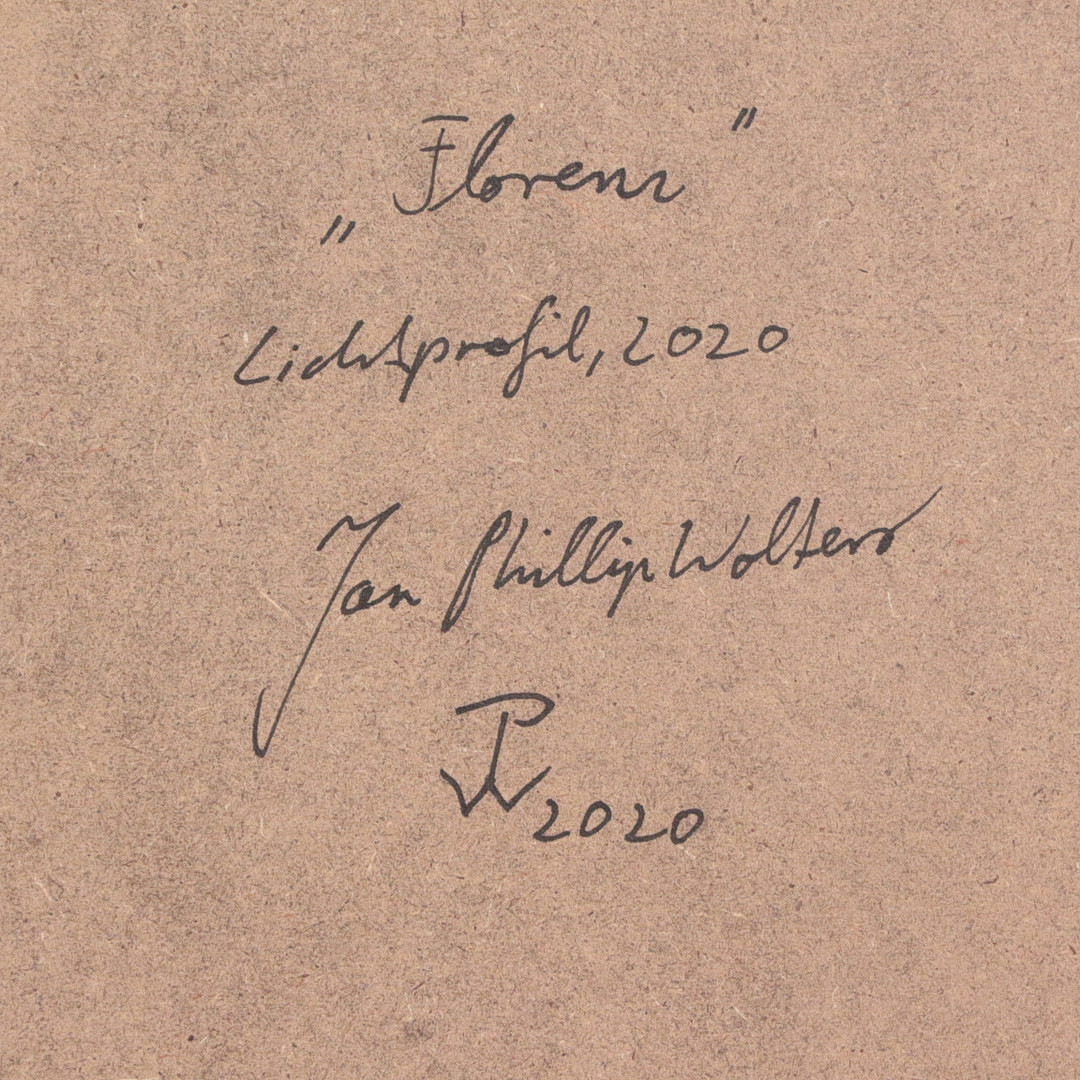 „Florenz"
Lichtprofil, 2020
Jan Phillip Wolters
JPW 2020